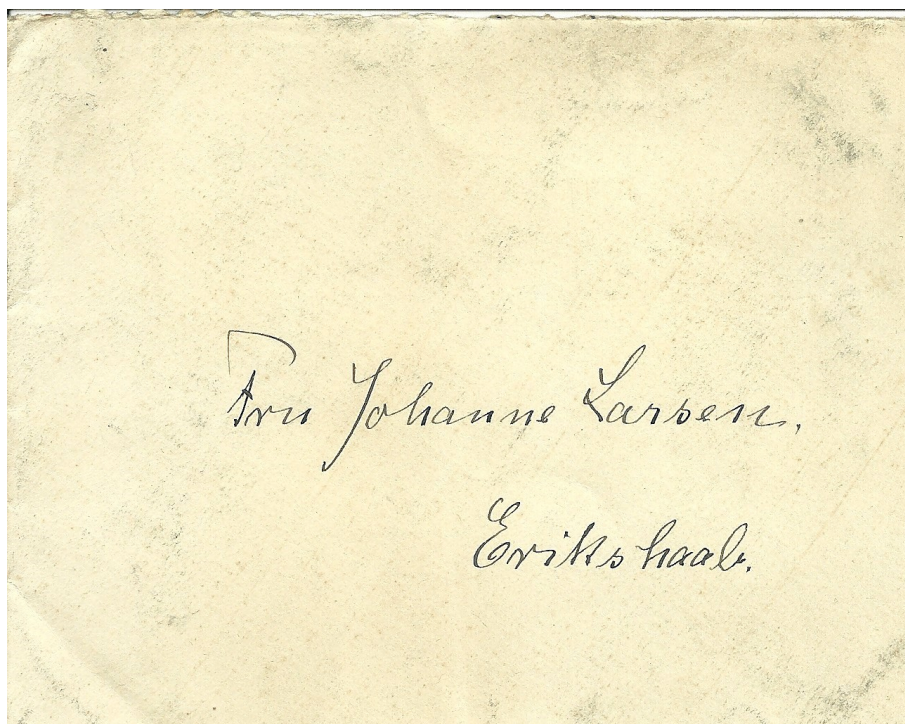 Fru Johanne Larsen.
Erikshaab.